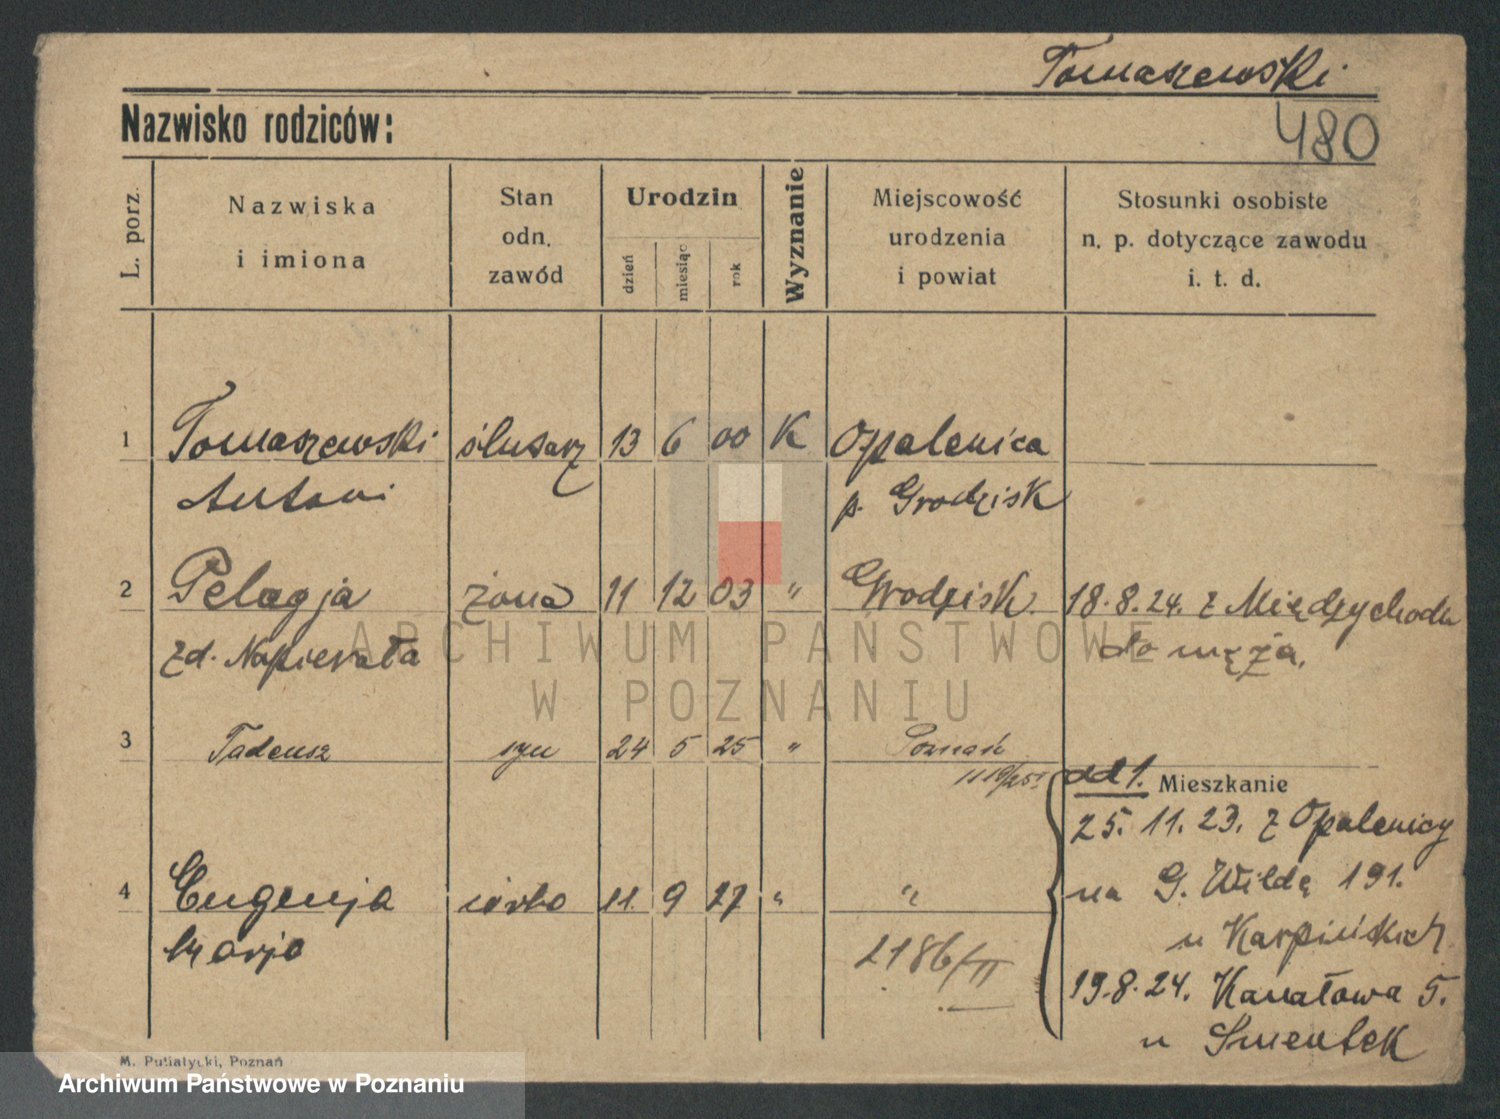 Tomaszewski
Nazwisko rodziców:
480
L. porz.
Nazwiska
i imiona
Stan
odn.
zawód
Urodzin
dzień
miesiąc
rok
Wyznanie
Miejscowość
urodzenia
i powiat
Stosunki osobiste
n. p. dotyczące zawodu
i. t. d.
1 Tomaszewski ślusarz 13 6 00 K Opalenica
Antoni p. Grodzisk
2 Pelagja żona 11 12 03 " Grodzisk. 18.8.24. z Międzychodu
zd. Napierała do męża.
ARCHIWUM PAŃSTWOWE
W POZNANIU
3 Tadeusz syn 24 5 25 " Poznań
1119/25
ad 1. Mieszkanie
25. 11. 23. z Opalenicy
4 Eugenja córka 11 9 27 " "
na G. Wildę 191.
Marja
u Karpińskich
2186/II
19.8.24. Kanałowa 5.
u Smentek
M. Putiatycki, Poznań
Archiwum Państwowe w Poznaniu